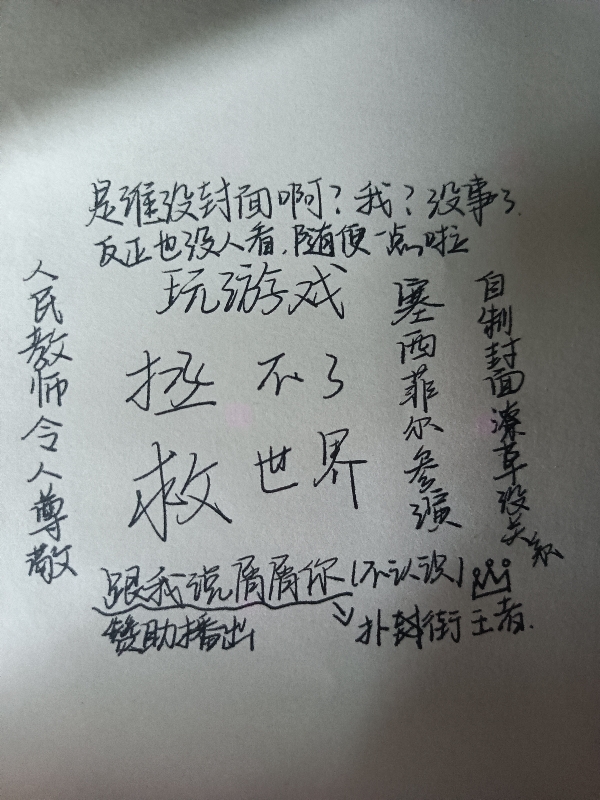 是谁没封面啊？我？没事了.
反正也没人看.随便一点啦
玩游戏
拯 不了
救 世界
人民教师令人尊敬
塞西菲尔参演
自制封面潦草没关系
跟我说屑屑你(不认识)
赞助播出
扑街王者.